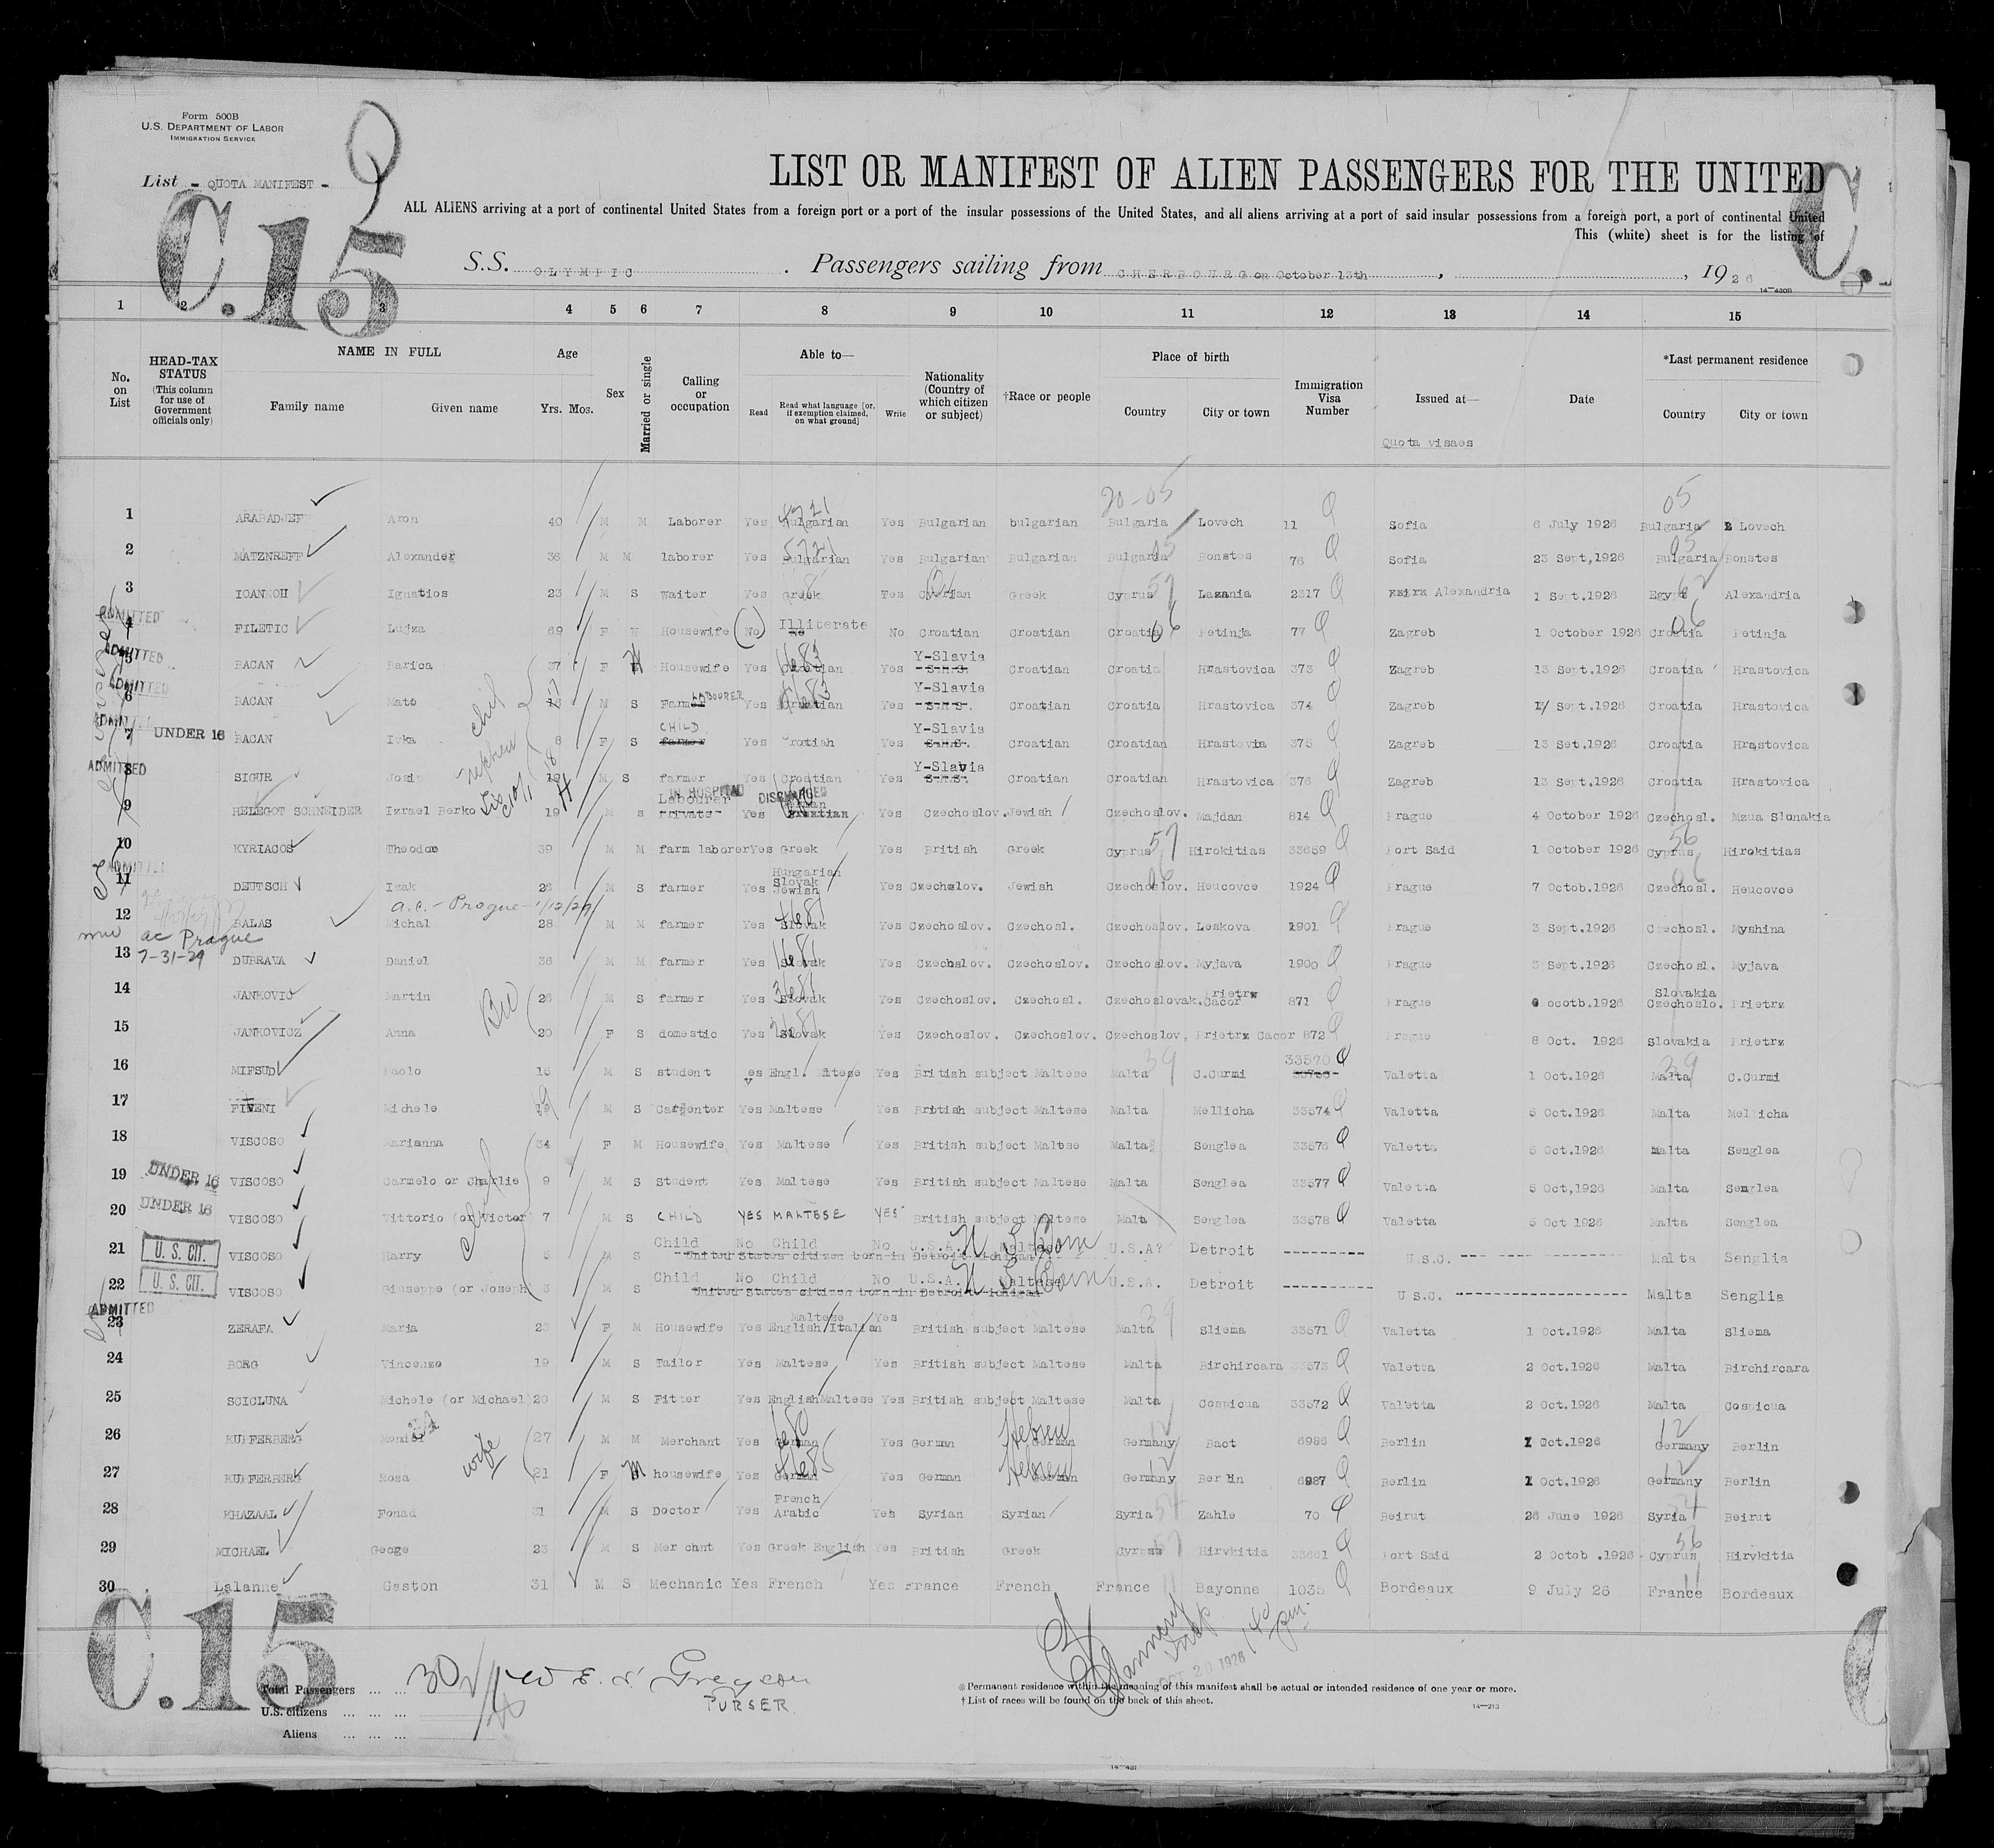 Form 500B
U.S. DEPARTMENT OF LABOR
IMMIGRATION SERVICE
List - QUOTA MANIFEST -
C.15
C.
LIST OR MANIFEST OF ALIEN PASSENGERS FOR THE UNITED
ALL ALIENS arriving at a port of continental United States from a foreign port or a port of the insular possessions of the United States, and all aliens arriving at a port of said insular possessions from a foreign port, a port of continental United
This (white) sheet is for the listing of
S.S. OLYMPIC . Passengers sailing from CHERBOURG on October 13th , , 1926
14-430B
1 2 3 4 5 6 7 8 9 10 11 12 13 14 15
No. on List HEAD-TAX STATUS (This column for use of Government officials only) NAME IN FULL Family name Given name Age Yrs. Mos. Sex Married or single Calling or occupation Able to— Read Read what language [or, if exemption claimed, on what ground] Write Nationality (Country of which citizen or subject) †Race or people Place of birth Country City or town Immigration Visa Number Issued at— Date *Last permanent residence Country City or town
Quota visaes
20-05 05
1 ARABADJEF Aron 40 M M Laborer Yes Bulgarian Yes Bulgarian bulgarian Bulgaria Lovech 11 Q Sofia 6 July 1926 Bulgaria Lovech
2 MATZNREFF Alexander 36 M M laborer Yes Bulgarian Yes Bulgarian Bulgarian Bulgaria Bonstes 76 Q Sofia 23 Sept,1926 Bulgaria Bonstes
3 IOANKOH Ignatios 23 M S Waiter Yes Greek Yes Cyprian Greek Cyprus Lazania 2317 Q Alexandria 1 Sept.1926 Egypt Alexandria
ADMITTED
4 FILETIC Lujza 69 F W Housewife (No) Illiterate No Croatian Croatian Croatia Petinja 77 Q Zagreb 1 October 1926 Croatia Petinja
ADMITTED
5 BACAN Barica 37 F Housewife Yes Croatian Yes Y-Slavia S.H.S. Croatian Croatia Hrastovica 373 Q Zagreb 13 Sept.1926 Croatia Hrastovica
ADMITTED
6 BACAN Mato M S Farmer LABOURER Yes Croatian Yes Y-Slavia S.H.S. Croatian Croatia Hrastovica 374 Q Zagreb Sept.1926 Croatia Hrastovica
7 UNDER 16 BACAN Ivka 8 F S CHILD farmer Yes Crotiah Yes Y-Slavia S.H.S. Croatian Croatian Hrastovia 375 Q Zagreb 13 Set.1926 Croatia Hrastovica
ADMITTED
8 SIGUR Josip M S farmer Yes Croatian Yes Y-Slavia S.H.S. Croatian Croatian Hrastovica 376 Q Zagreb 13 Sept.1926 Croatia Hrastovica
IN HOSPITAL DISCHARGED
9 HELEGOT SCHNEIDER Izrael Berko 19 M S Labourer private Yes Yes Czechoslov. Jewish Czechoslov. Majdan 814 Q Prague 4 October 1926 Czechosl. Mzua Slunakia
10 KYRIACOS Theodor 39 M M farm laborer Yes Greek Yes British Greek Cyprus Hirokitias 33659 Q Port Said 1 October 1926 Cyprus Hirokitias
11 DEUTSCH Izak 26 M S farmer Yes Hungarian Slovak Jewish Yes Czechslov. Jewish Czechoslov. Heucovce 1924 Q Prague 7 Octob.1926 Czechosl. Heucovce
a.c. - Prague - 1/12/29
12 BALAS Michal 28 M M farmer Yes Slovak Yes Czechoslov. Czechosl. Czechoslov. Leskova 1901 Q Prague 3 Sept.1926 Czechosl. Myshina
ac Prague
7-31-29
13 DUBRAVA Daniel 36 M M farmer Yes Slovak Yes Czechslov. Czechoslov. Czechoslov. Myjava 1900 Q Prague 3 Sept.1926 Czechosl. Myjava
14 JANKOVIC Martin 26 M S farmer Yes Slovak Yes Czechoslov. Czechosl. Czechoslovak. Prietrz Cacor 871 Q Prague ocotb.1926 Slovakia Czechoslo. Prietrz
15 JANKOVICZ Anna 20 F S domestic Yes Slovak Yes Czechoslov. Czechoslov. Czechoslov, Prietrz Cacor 872 Q Prague 8 Oct. 1926 Slovakia Prietrz
16 MIFSUD Paolo 18 M S student Yes Engl. Mltese Yes British subject Maltese Malta C.Curmi 33570 Q Valetta 1 Oct.1926 Malta C.Curmi
17 Michele M S Carpenter Yes Maltese Yes British subject Maltese Malta Mellicha 33574 Q Valetta 5 Oct.1926 Malta Mellicha
18 VISCOSO Marianna 34 F M Housewife Yes Maltese Yes British subject Maltese Malta Senglea 33576 Q Valetta 5 Oct.1926 Malta Senglea
19 UNDER 16 VISCOSO Carmelo or Charlie 9 M S Student Yes Maltese Yes British subject Maltese Malta Senglea 33577 Q Valetta 5 Oct,1926 Malta Senglea
20 UNDER 16 VISCOSO Vittorio (or Victor 7 M S CHILD YES MALTESE YES British subject Maltese Malta Senglea 33578 Q Valetta 5 Oct 1926 Malta Senglea
21 U. S. CIT. VISCOSO Harry 5 M S Child No Child No U.S.A. Maltese U S Born U.S.A? Detroit ---------- U.S.C. ---------- Malta Senglia
United States citizen born in Detroit Michigan
22 U. S. CIT. VISCOSO Giuseppe (or Joseph) 3 M S Child No Child No U.S.A. Maltese U S Born U.S.A. Detroit ---------- U S.C. ---------- Malta Senglia
United States citizen born in Detroit Michigan
ADMITTED
23 ZERAFA Maria 23 F M Housewife Yes Maltese English/Italian Yes British subject Maltese Malta Sliema 33571 Q Valetta 1 Oct.1926 Malta Sliema
24 BORG Vincenzo 19 M S Tailor Yes Maltese Yes British subject Maltese Malta Birchircara 33573 Q Valetta 2 Oct.1926 Malta Birchircara
25 SCICLUNA Michele (or Michael 20 M S Fitter Yes English Maltese Yes British subject Maltese Malta Cospicua 33572 Q Valetta 2 Oct.1926 Malta Cospicua
26 KUPFERBERG 27 M M Merchant Yes German Yes German Hebrew German Germany Bact 6986 Q Berlin 1 Oct.1926 Germany Berlin
27 KUPFERBERG Rosa wife 21 F M housewife Yes German Yes German Hebrew German Germany Berlin 6987 Q Berlin 1 Oct.1926 Germany Berlin
28 KHAZAAL Fonad 31 M S Doctor Yes French Arabic Yes Syrian Syrian Syria Zahle 70 Q Beirut 26 June 1926 Syria Beirut
29 MICHAEL Geoge 23 M S Mer chnt Yes Greek English Yes British Greek Cyrus Hirvkitia 33661 Q Port Said 2 Octob .1926 Cyprus Hirvkitia
30 Lalanne Gaston 31 M S Mechanic Yes French Yes France French France Bayonne 1035 Q Bordeaux 9 July 26 France Bordeaux
C.15
Total Passengers ... ... 30
U.S. citizens ... ... ...
Aliens ... ... ...
PURSER.
OCT 20 1926
140 pm.
* Permanent residence within the meaning of this manifest shall be actual or intended residence of one year or more.
† List of races will be found on the back of this sheet.
14-213
14-431